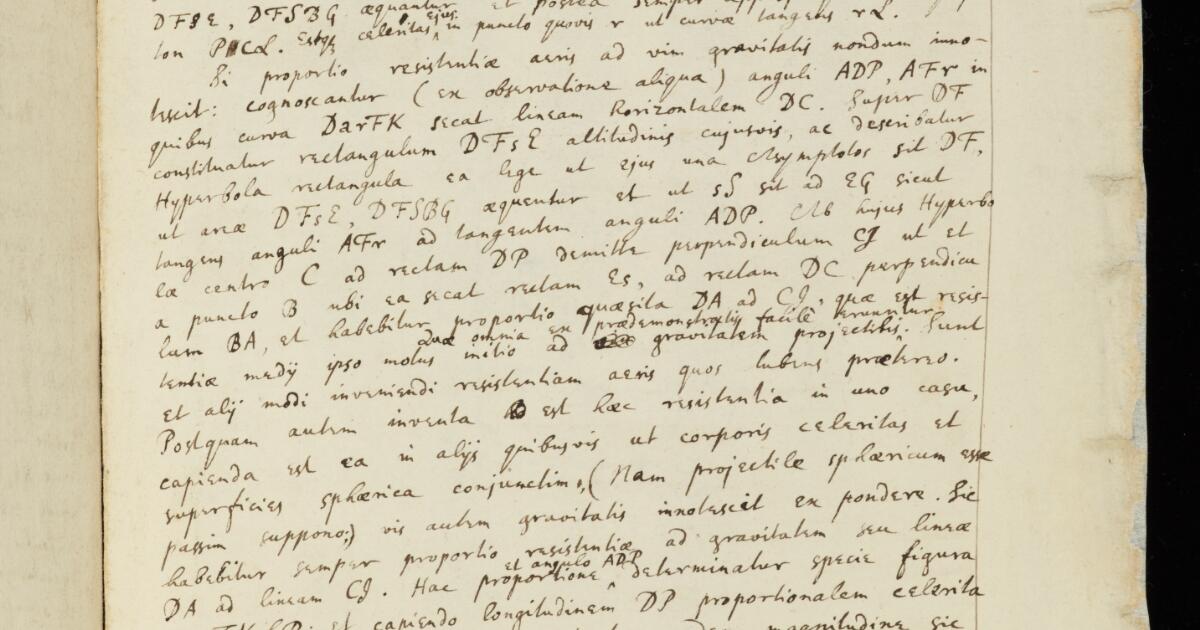 DFsE, DFSBG æquantur et postea semper
ton PCL. Estq celeritas ejus in puncto quovis r ut curvæ tangens rL.
Si proportio resistentiæ aeris ad vim gravitatis nondum inno-
tescit: cognoscantur (ex observatione aliqua) anguli ADP, AFr in
quibus curva DarFK secat lineam horizontalem DC. Super DF
constituatur rectangulum DFsE altitudinis cujusvis, ac describatur
Hyperbola rectangula ea lege ut ejus una Asymptotos sit DF,
ut areæ DFsE, DFSBG æquentur et ut sS sit ad EG sicut
tangens anguli AFr ad tangentem anguli ADP. Ab hujus Hyperbo
læ centro C ad rectam DP demitte perpendiculum CI ut et
a puncto B ubi ea secat rectam Es, ad rectam DC perpendicu
lum BA, et habebitur proportio quæsita DA ad CI, quæ est resis-
tentiæ medij ipso motus initio ad gravitatem projectilis. Quæ omnia ex prædemonstratis facilè eruuntur. Sunt
et alij modi inveniendi resistentiam aeris quos lubens prætereo.
Postquam autem inventa est hæc resistentia in uno casu,
capienda est ea in alijs quibusvis ut corporis celeritas et
superficies sphærica conjunctim, (Nam projectile sphæricum esse
passim suppono;) vis autem gravitatis innotescit ex pondere. Sic
habebitur semper proportio resistentiæ ad gravitatem seu lineæ
DA ad lineam CI. Hac proportione et angulo ADP determinatur specie figura
et capiendo longitudinem DP proportionalem celerita
magnitudine sic